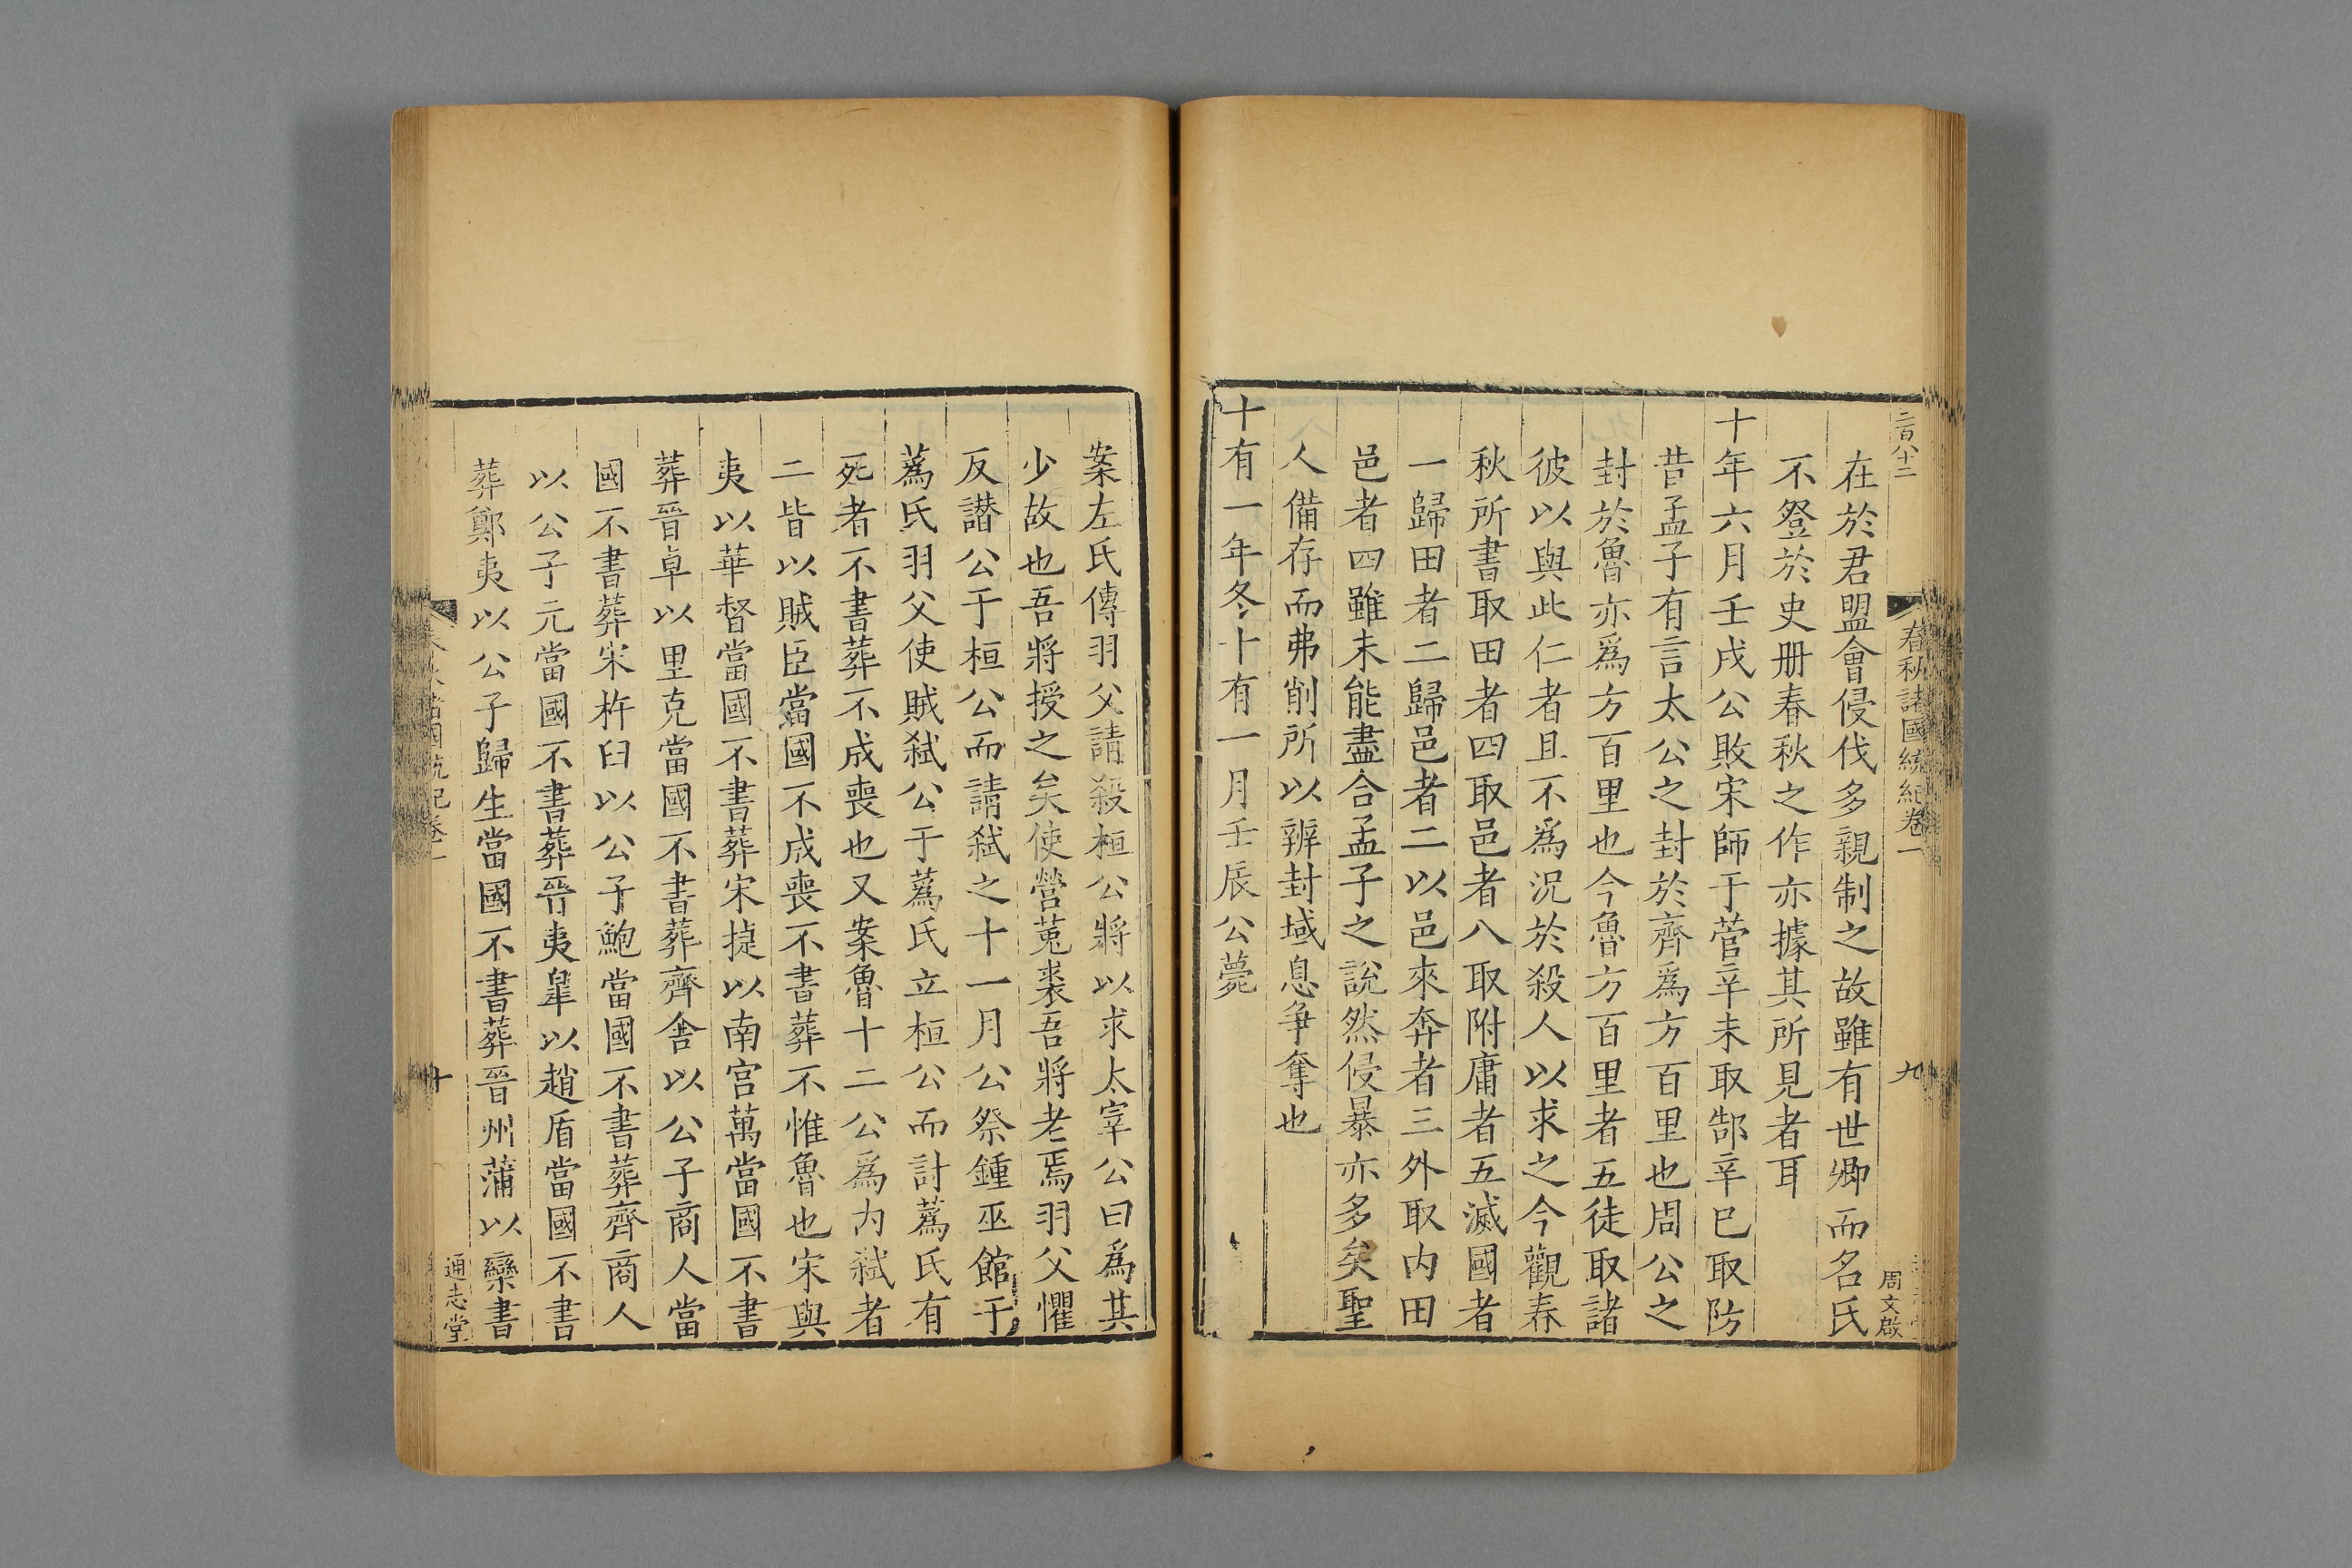 二百八十二
春秋諸國統紀卷一
九
周文啟
在於君盟會侵伐多親制之故雖有世卿而名氏
不登於史冊春秋之作亦據其所見者耳
十年六月壬戌公敗宋師于菅辛未取郜辛巳取防
昔孟子有言太公之封於齊爲方百里也周公之
封於魯亦爲方百里也今魯方百里者五徒取諸
彼以與此仁者且不爲況於殺人以求之今觀春
秋所書取田者四取邑者八取附庸者五滅國者
一歸田者二歸邑者二以邑來奔者三外取内田
邑者四雖未能盡合孟子之說然侵暴亦多矣聖
人備存而弗削所以辨封域息爭奪也
十有一年冬十有一月壬辰公薨
案左氏傳羽父請殺桓公將以求太宰公曰爲其
少故也吾將授之矣使營菟裘吾將老焉羽父懼
反譖公于桓公而請弒之十一月公祭鍾巫館于
蒍氏羽父使賊弒公于蒍氏立桓公而討蒍氏有
死者不書葬不成喪也又案魯十二公爲内弒者
二皆以賊臣當國不成喪不書葬不惟魯也宋與
夷以華督當國不書葬宋捷以南宫萬當國不書
葬晉卓以里克當國不書葬齊舍以公子商人當
國不書葬宋杵臼以公子鮑當國不書葬齊商人
以公子元當國不書葬晉夷皐以趙盾當國不書
葬鄭夷以公子歸生當國不書葬晉州蒲以欒書
春秋諸國統紀卷一
十
通志堂